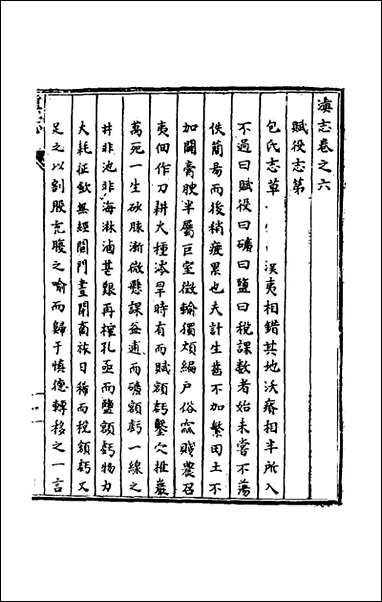 滇志卷之六
賦役志第
包氏志草 漢夷相錯其地沃瘠相半所入
不過曰賦役曰礦曰鹽曰稅課數者始未嘗不蕩
佚簡易而後稍疲累也夫計生齒不加繁田土不
加闢膏腴半屬巨室徵輸獨煩編戶俗窳賤農召
夷佃作刀耕火種澇旱時有而賦額虧鑿穴椎巖
萬死一生砂脉漸微懸課益逋而礦額虧一線之
井非池非海淋滷甚艱再榷孔亟而鹽額虧物力
大耗征斂無經閭門晝閉商旅日稀而稅額虧又
足之以割股充腹之喻而歸于慎德轉移之一言